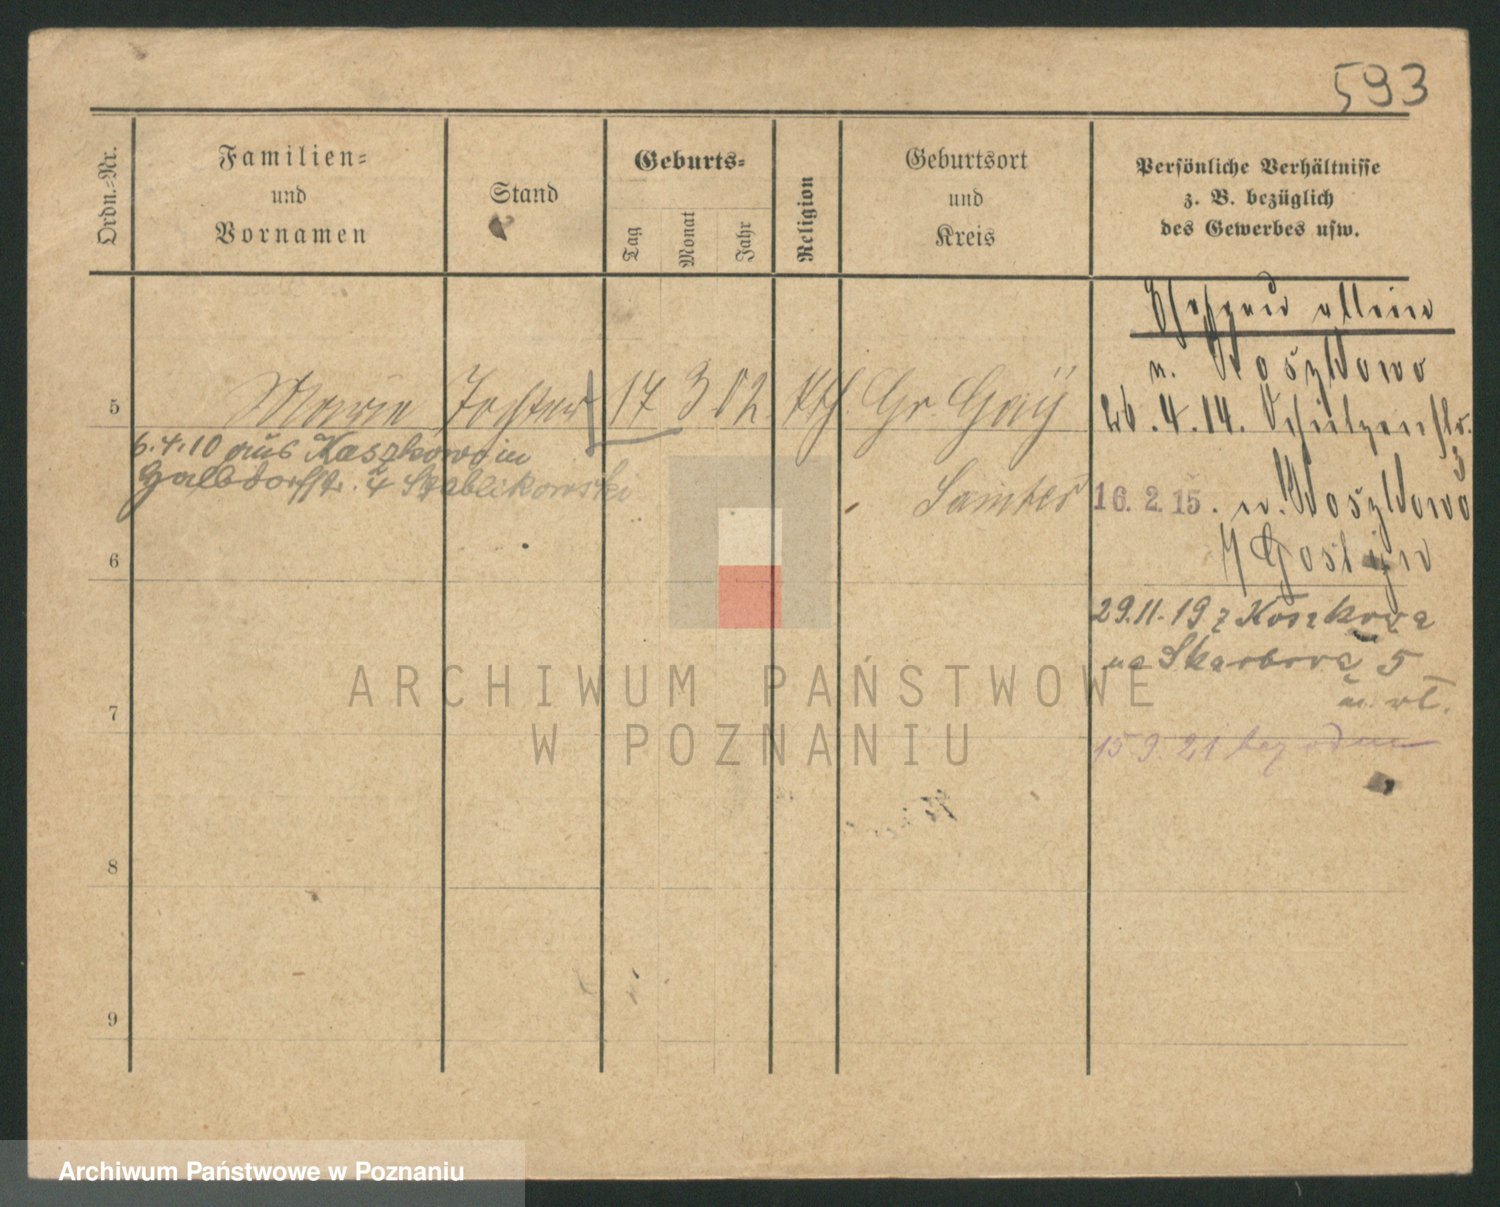 593
Ordn.-Nr.
Familien-
und
Vornamen
Stand
Geburts-
Tag
Monat
Jahr
Religion
Geburtsort
und
Kreis
Persönliche Verhältnisse
z. B. bezüglich
des Gewerbes usw.
allein
n.
5 Marie Tochter 17 3 02 kth. Gr. Gay
26.4.14. Schützenstr.
3
6.4.10 aus in
Halbdorfstr. 4
Samter
16.2.15. n.
Gostyn
6
29.11.19 z
na Skarbova 5
m. wł.
7
15 9. 21 bez odm
8
9
ARCHIWUM PAŃSTWOWE
W POZNANIU
Archiwum Państwowe w Poznaniu